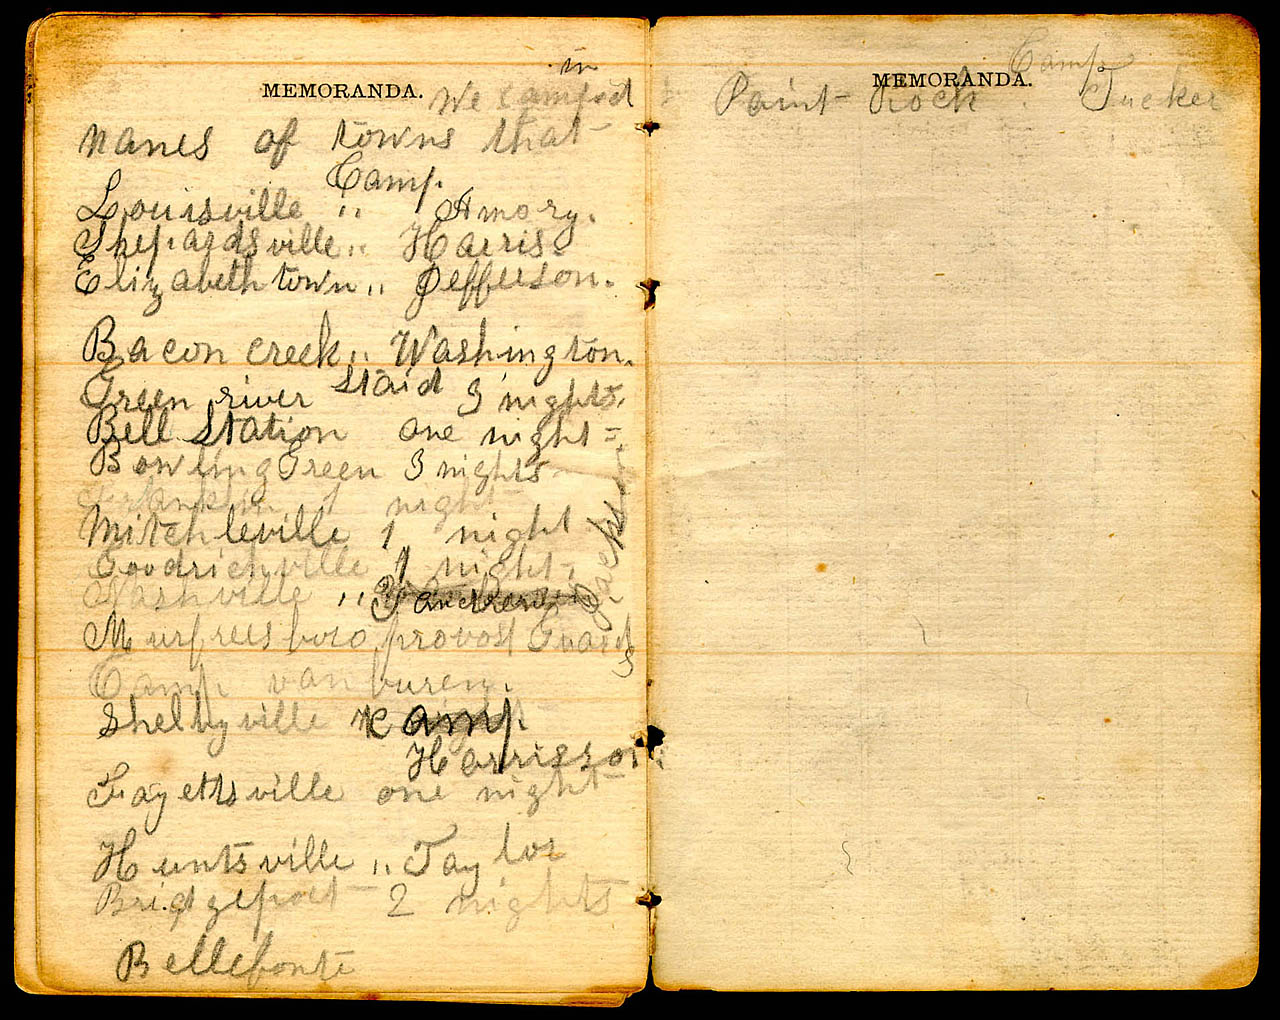 MEMORANDA.
in
We camped
Names of towns that
Camp.
Louisville " Amory.
Shepardsville " Harris.
Elizabethtown " Jefferson.
Bacon creek " Washington.
Green river staid 3 nights.
Bell Station one night
Bowling Green 3 nights
Franklin 1 night
Mitchleville 1 night
Goodrichville 1 night.
Nashville " Andrew Jackson
Murfreesboro provost Guards
Camp van buren.
Shelbyville Camp
Harrison
Fayettsville one night
Huntsville " Taylor
Bridgeport 2 nights
Bellefonte
MEMORANDA.
Camp
Paint Rock Tucker